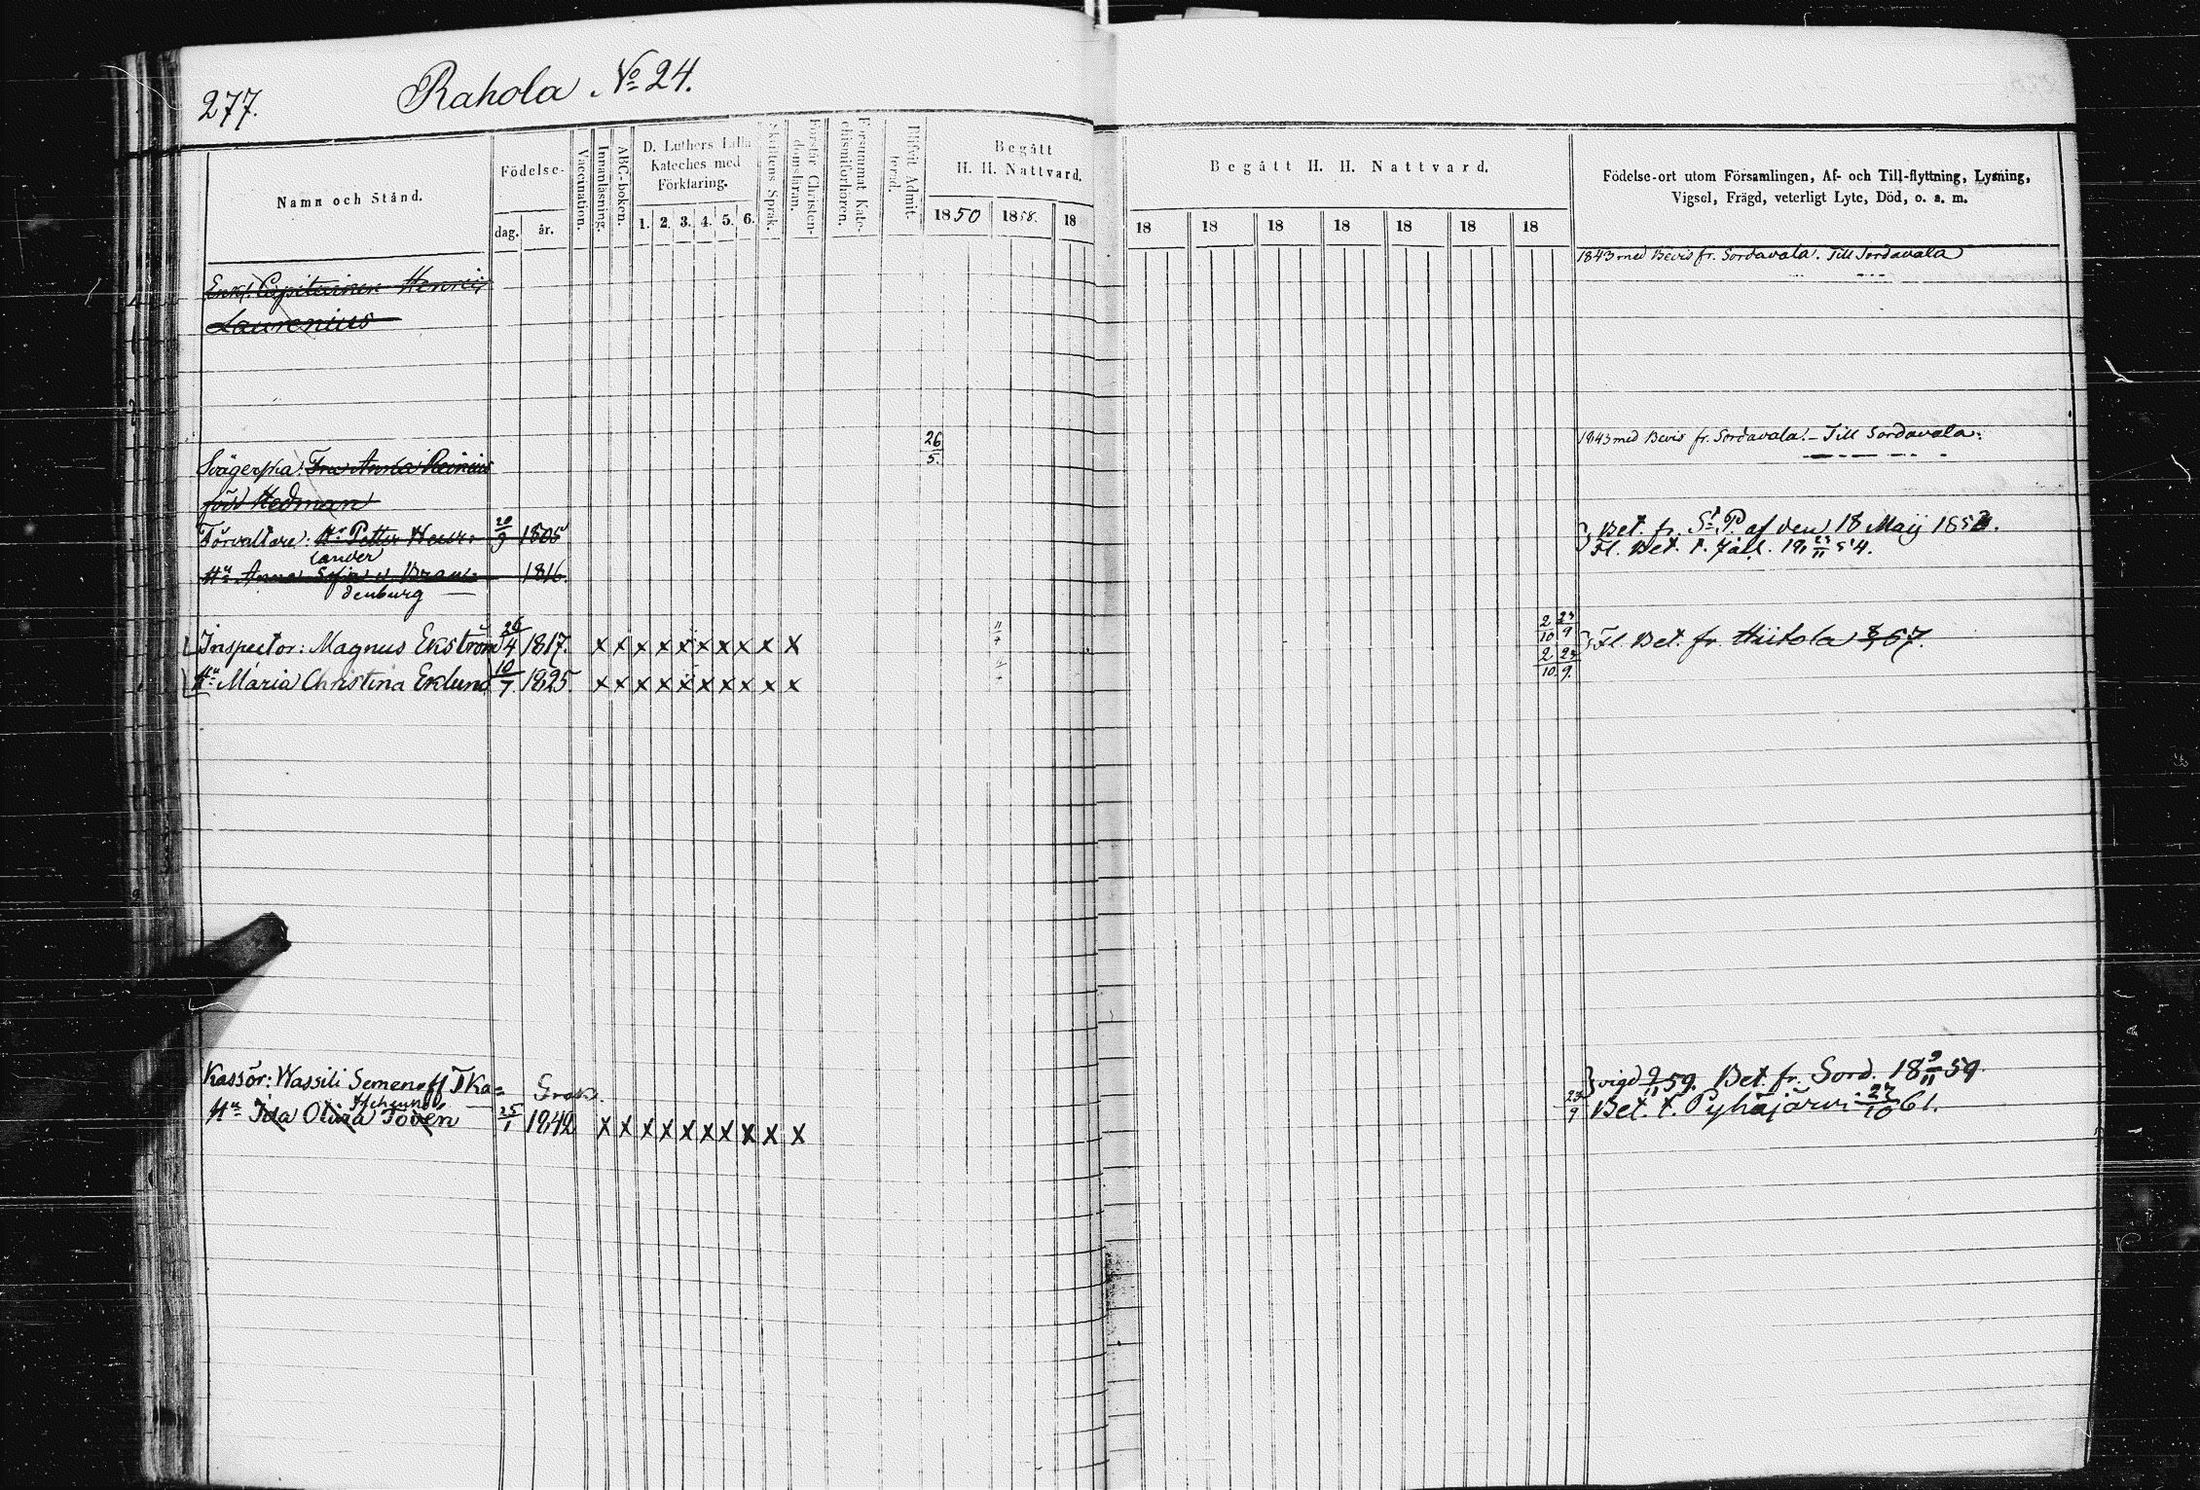 277.
Rahola No 24.
Namn och Stånd.
Födelse-
dag.
år.
Vaccination.
Innanläsning.
ABC-boken.
D. Luthers Lilla
Kateches med
Förklaring.
1. 2. 3. 4. 5. 6.
Skriftens Språk.
Förstår Christen-
domsläran.
Försummat Kate-
chismiförhören.
Blifvit Admit-
terad.
Begått
H. H. Nattvard.
1850 1858. 18
Begått H. H. Nattvard.
18 18 18 18 18 18 18
Födelse-ort utom Församlingen, Af- och Till-flyttning, Lysning,
Vigsel, Frägd, veterligt Lyte, Död, o. s. m.
Enkl. Henric
Laurenius
1843 med Bevis fr. Sordavala. Till Sordavala
Svägerska: Fru Anna
född Hedman
26/5.
1843 med Bevis fr. Sordavala. – Till Sordavala.
Förvaltare: Hr Petter
lander
20/9 1805
Bet. fr. St. P. af den 18 Maij 185
Hu Anna Sofia v. Bran-
denburg
1816.
Fl. Bet. t.
Inspector: Magnus Ekström 26/4 1817. x x x x x x x x x x
11/4 2/10 23/9
Fl. Bet. fr. Hiitola 67.
Hu Maria Christina Eklund 10/7 1825. x x x x x x x x x x
2/10 23/9.
Kassör: Wassili Semenoff Tka=
tschenko
Grek.
vigd 9/11 59. Bet. fr. Sord. 18 9/11 59
Hu Ida Olivia Tovén 25/1 1842 x x x x x x x x x x
23/9
Bet. t. Pyhäjärvi 27/10 61.